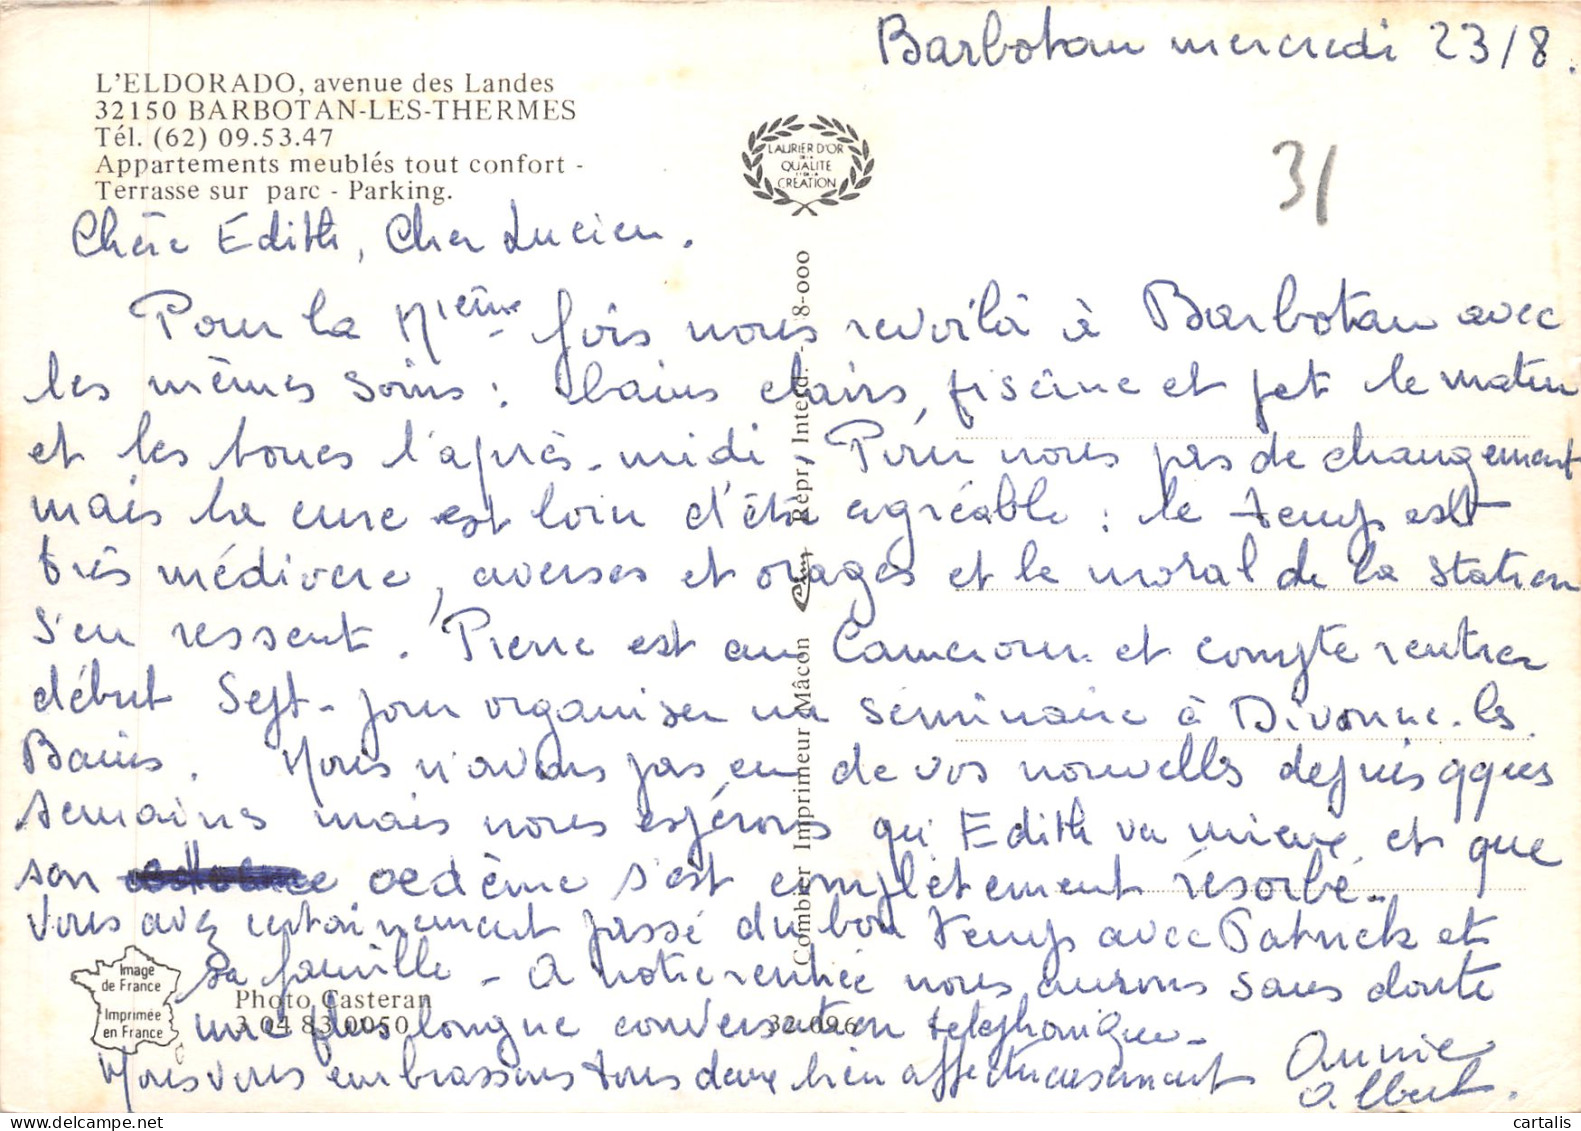 Barbotan mercredi 23/8.
L'ELDORADO, avenue des Landes
32150 BARBOTAN-LES-THERMES
Tél. (62) 09.53.47
Appartements meublés tout confort -
Terrasse sur parc - Parking.
LAURIER D'OR
DE LA
QUALITE
ET DE LA
CREATION
31
Chère Edith, Cher Lucien.
Pour la Nième fois nous revoilà à Barbotan avec
les mêmes soins : bains clairs, piscine et jet le matin
et les boues l'après-midi. Pour nous pas de changement
mais la cure est loin d'être agréable : le temps est
très médiocre, averses et orages et le moral de la station
s'en ressent. Pierre est au Cameroun et compte rentrer
début Sept. pour organiser un séminaire à Divonne-les
Bains. Nous n'avons pas eu de vos nouvelles depuis qques
semaines mais nous espérons qu'Edith va mieux et que
son oedème s'est complètement résorbé.
Vous avez certainement passé du bon temps avec Patrick et
sa famille - A notre rentrée nous aurons sans doute
une plus longue conversation téléphonique.
Nous vous embrassons tous deux bien affectueusement Annie
Albert.
Image
de France
Imprimée
en France
Photo Casteran
3 04 83 0050
32 096
Combier Imprimeur Mâcon Cim Repr. Interd. - 8-000